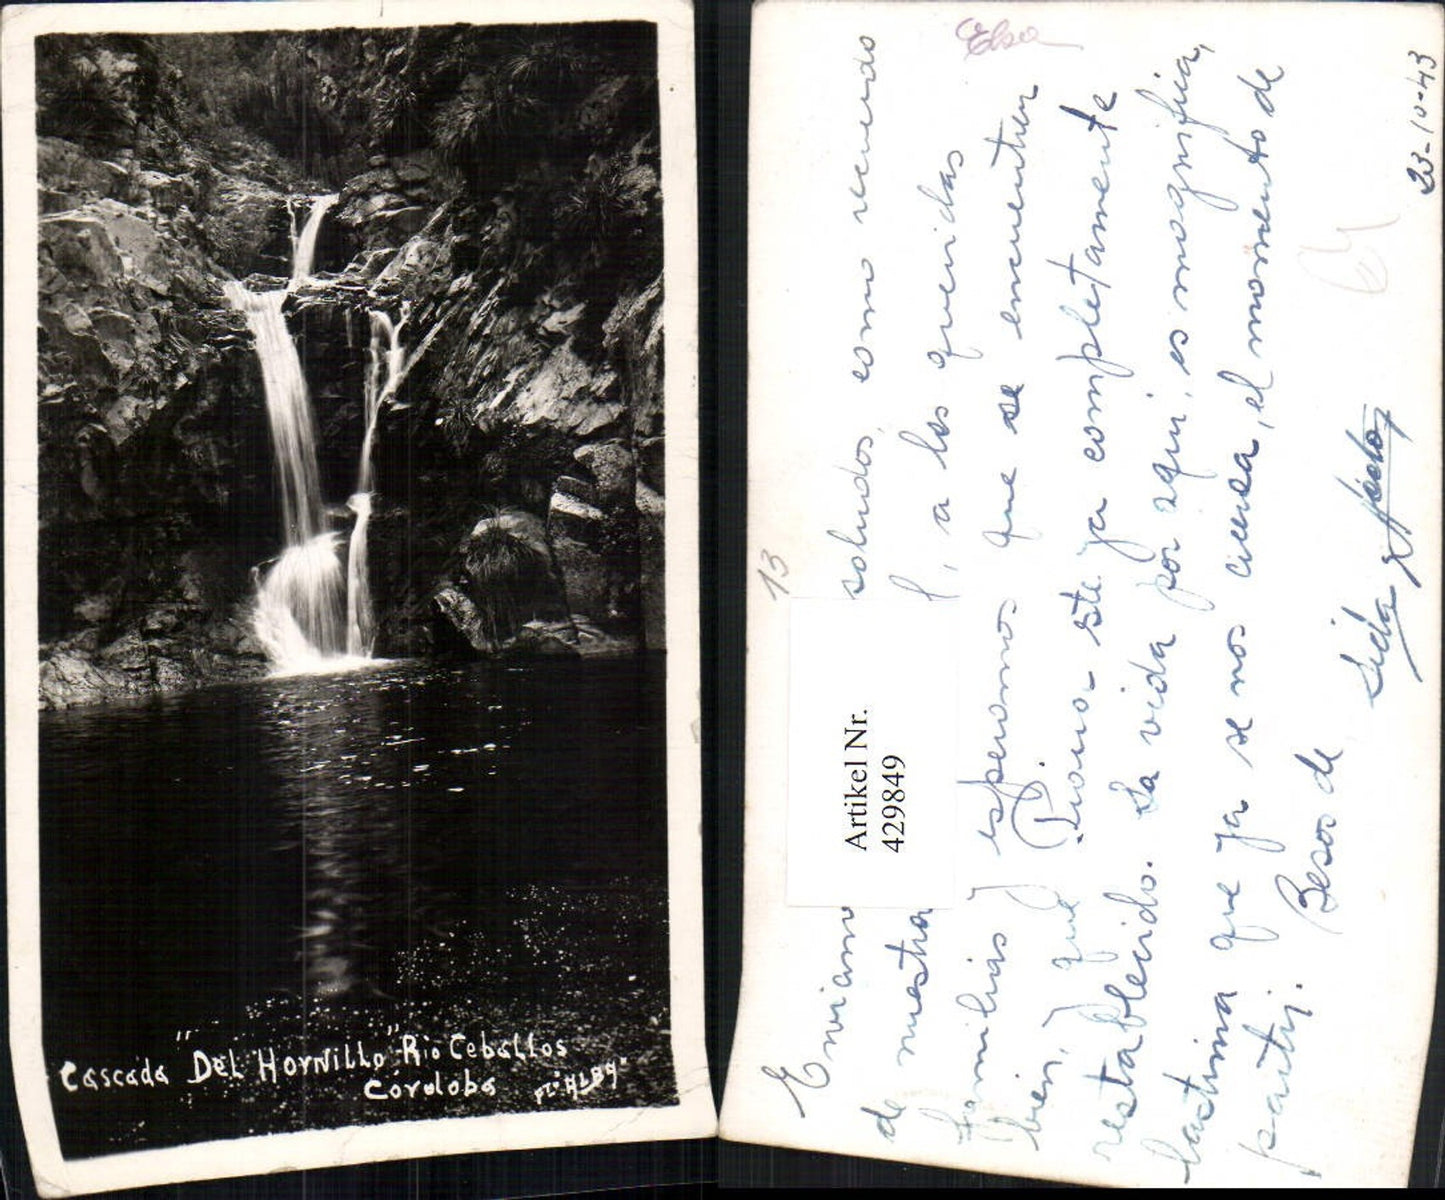 Cascada "Del Hornillo" Rio Ceballos
Córdoba
Ft. "ALBA"
Elsa
13
Artikel Nr.
429849
23-10-43
Enviamo saludos, como recuerdo
de nuestra l, a los queridas
familias y esperamos que se encuentren
bien, y que este ya completamente
restablecido. La vida por aqui, es magnifica,
lastima que ya se nos cerca, el momento de
partir.
Besos de